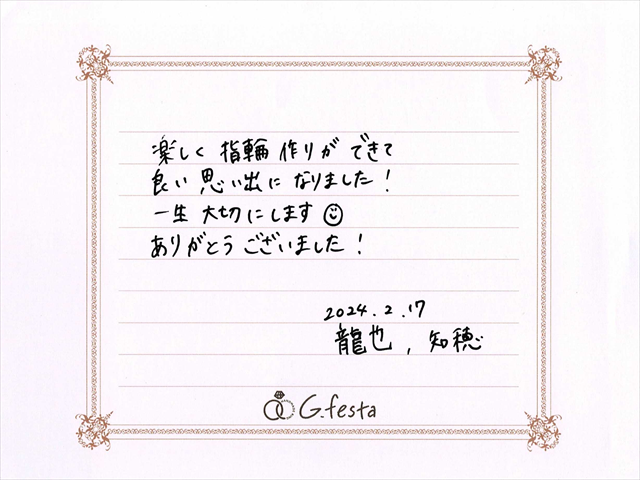 楽しく 指輪 作りが できて
良い 思い出に なりました!
一生 大切にします
ありがとう ございました!
2024.2.17
龍也, 知穂
G.festa